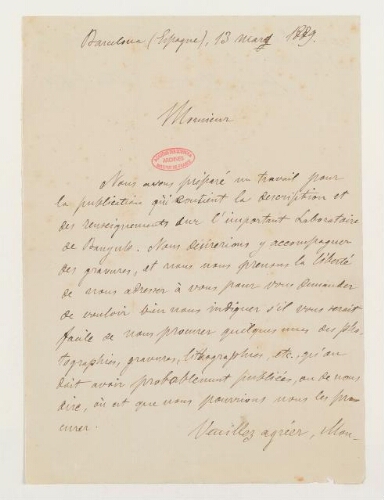 Barcelona (Espagne), 13 mars 1889.
Monsieur
ARCHIVES
Nous avons préparé un travail pour
la publication qui contient la description et
des renseignements sur l'important Laboratoire
de Banyuls. Nous désirerions y accompagner
des gravures, et nous nous prenons la liberté
de nous adresser à vous pour vous demander
de vouloir bien nous indiquer s'il vous serait
facile de nous procurer quelques unes des pho-
tographies, gravures, lithographies, etc., qu'on
doit avoir probablement publiées, ou de nous
dire, où est que nous pourrions nous les pro-
curer.
Veuillez agréer, Mon-